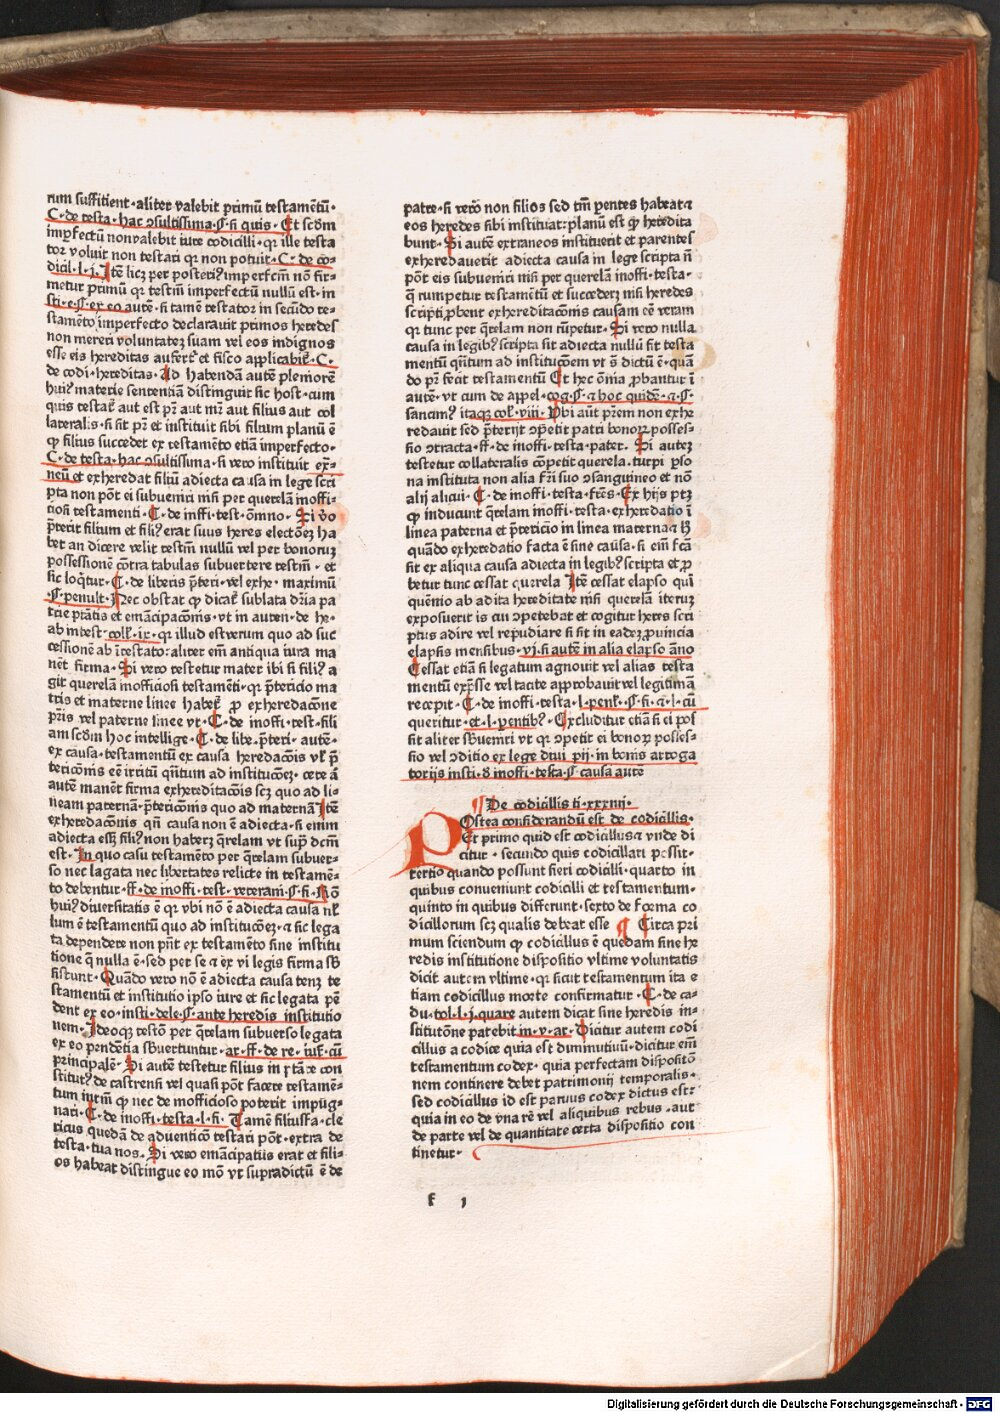 rum suffitient·aliter valebit primū testamētū·
C·de testa·hac ↄsultissima·¶·si quis·Et scḋm
impfectū non valebit iure codicilli·qꝛ ille testa
tor voluit non testari qꝛ non potuit·C·de co-
dicil·l·j·Itē licꝫ per posteriꝰ imperfcm̄ nō fir-
metur primū qꝛ testm̄ imperfectū nullū est·in
sti·e·¶·ex eo autē·si tamē testator in secūdo te-
stamēto imperfecto declarauit primos heredes
non mereri voluntateꝫ suam vel eos indignos
esse eis hereditas aufert̄ et fisco applicabit̄·C·
de codi·hereditas·Ad habendā autē pleniorē
huiꝰ materie sententiā distinguit sic host·cum
quis testat̄ aut est pr̄ aut mr̄ aut filius aut col
lateralis·si sit pr̄ et instituit sibi filium planū ē
ꝙ filius succedet ex testamēto etiā imperfecto·
C·de testa·hac ↄsultissima·si vero instituit ex-
neū et exheredat filiū adiecta causa in lege scri
pta non pōt ei subueniri nisi per querelā inoffi-
ciosi testamenti·C·de inffi·test·ōmno·Si v̊o
p̄terit filium et filiꝰ erat suus heres electōeꝫ ha
bet an dicere velit testm̄ nullū vel per bonoꝝ
possessionē cōtra tabulas subuertere testm̄·et
sic loqͥtur·C·de liberis p̄teri·vel exhe·maximū
·¶·penult·Nec obstat ꝙ dicat̄ sublata dr̄ia pa
trie ptātis et emācipacōnis·vt in auten·de he·
ab intest·coll̓·ix·qꝛ illud est verum quo ad suc
cessionē ab ītestato:aliter em̄ antiqua iura ma
nēt firma·Si vero testetur mater ibi si filiꝰ a
git querelā inofficiosi testamēti·qꝛ p̄tericio ma
tris et materne linee habet̄ ꝓ exheredacōne
pr̄is vel paterne linee vt·C·de inoffi·test·fili
am scḋm hoc intellige·C·de libe·p̄teri·autē·
ex causa·testamentū ex causa heredacōis vl̓ p̄
tericōnis eē irritū qn̄tum ad institucōeꝫ·cete ā
autē manēt firma exhereditacōis scꝫ quo ad li-
neam paternā·p̄tericōnis quo ad maternā Itē
exheredacōnis qn̄ causa non ē adiecta·si enim
adiecta eēt filiꝰ non haberꝫ q̄relam vt sup̄ dcm̄
est·In quo casu testamēto per q̄relam subuer-
so nec lagata nec libertates relicte in testamē-
to debentur·ff·de inoffi·test·veteram·¶·si·Rō
huiꝰ diuersitatis ē qꝛ vbi nō ē adiecta causa nl̓
lum ē testamentū quo ad institucōeꝫ·⁊ sic lega
ta dependere non pn̄t ex testamēto sine institu
tione q̄ nulla ē·sed per se ⁊ ex vi legis firma sb̄
sistunt·Quādo vero nō ē adiecta causa tenꝫ te
stamentū et institutio ipso iure et sic legata pē
dent ex eo·insti·dele·¶·ante heredis institutio
nem·Ideoqꝫ testō per q̄relam subuerso legata
ex eo pendētia sb̄uertuntur·ar·ff·de re·iuꝶ·cū
principale·Si autē testetur filius in ptāte con
stitutꝰ de castrensi vel quasi pōt facere testamē-
tum inrm̄ ꝙ nec de inofficioso poterit impūg-
nari·C·de inoffi·testa·l·fi·Tamē filiusfa·cle
ricus quedā de aduenticō testari pōt·extra de
testa·tua nos·Si vero emācipatus erat et fili-
os habeat distingue eo mō vt supradictū ē de
patre·si vero non filios sed tm̄ pentes habeat ⁊
eos heredes sibi instituat:planū est ꝙ heredita
bunt·Si autē extraneos instituerit et parentes
exheredauerit adiecta causa in lege scripta n̄
pōt eis subueniri nisi per querelā inoffi·testa·
q̄ rumpetur testamētū et succederꝫ nisi heredes
scripti ꝓbent exhereditacōnis causam eē veram
qꝛ tunc per q̄relam non rūpetur·Si vero nulla
causa in legibꝰ scripta sit adiecta nullū fit testa
mentū qn̄tum ad institucōem vt s̄ dictū ē·quā
do pr̄ fecit testamētū Et hec ōnia ꝓbantur ī
autē·vt cum de appel·cog·¶·⁊ hoc quidē·⁊·¶·
sancim̄ꝰ itaqꝫ col̓·viii·Vbi aūt pr̄em non exhe
redauit sed p̄terijt ↄpetit patri bonoꝝ posses-
sio ↄtracta·ff·de inoffi·testa·pater·Si auteꝫ
testetur collateralis cōpetit querela·turpi ꝑso
na instituta non alia fr̄i suo ↄsanguineo et nō
alij alicui·C·de inoffi·testa·fr̄es·Ex hijs ptꝫ
ꝙ inducunt q̄relam inoffi·testa·exheredatio ī
linea paterna et p̄tericio in linea materna ⁊ h̄
quādo exheredatio facta ē sine causa·si em̄ fcā
sit ex aliqua causa adiecta in legibꝰ scripta et ꝓ
betur tunc cessat querela Itē cessat elapso qui
quēnio ab adita hereditate nisi querelā iteruꝫ
exposuerit is cui ↄpetebat et cogitur heres scri
ptus adire vel repudiare si sit in eadeꝫ ꝓuincia
elapsis mensibus·vj·si autē in alia elapso āno
Cessat etiā si legatum agnouit vel alias testa
mentū exp̄sse vel tacite approbauit vel legitimā
recepit·C·de inoffi·testa·l·penl̓·¶·fi·⁊·l·cū
queritur·et·l·ꝑentibꝰ·Excluditur etiā si ei pos
sit aliter sb̄uemri vt qꝛ ↄpetit ei bonoꝝ posses-
sio vel ↄditio ex lege diui pij·in bonis arroga
torijs insti·ð inoffi·testa·¶·causa autē
¶ De codicillis ti·xxxiiij·
POstea considerandū est de codicillis·
Et primo quid est codicillus ⁊ vnde di
citur·secundo quis codicillari possit·
tertio quando possunt fieri codicilli·quarto in
quibus conueniunt codicilli et testamentum·
quinto in quibus differunt·sexto de forma co
dicillorum scꝫ qualis debeat esse ¶ Circa pri
mum sciendum ꝙ codicillus ē quedam sine he
redis institutione dispositio vltime voluntatis
dicit autem vltime·qꝛ sicut testamentum ita e
tiam codicillus morte confirmatur·C·de ca-
du·tol·l·j·quare autem dicat sine heredis in-
stitutōne patebit in·v·ar·Dicitur autem codi
cillus a codice quia est diminutiuū·dicitur em̄
testamentum codex·quia perfectam dispositō
nem continere debet patrimonij temporalis·
sed codicillus id est paruus codex dictus est:
quia in eo de vna re vel aliquibus rebus·aut
de parte vel de quantitate certa dispositio con
tinetur·
f j
Digitalisierung gefördert durch die Deutsche Forschungsgemeinschaft - DFG